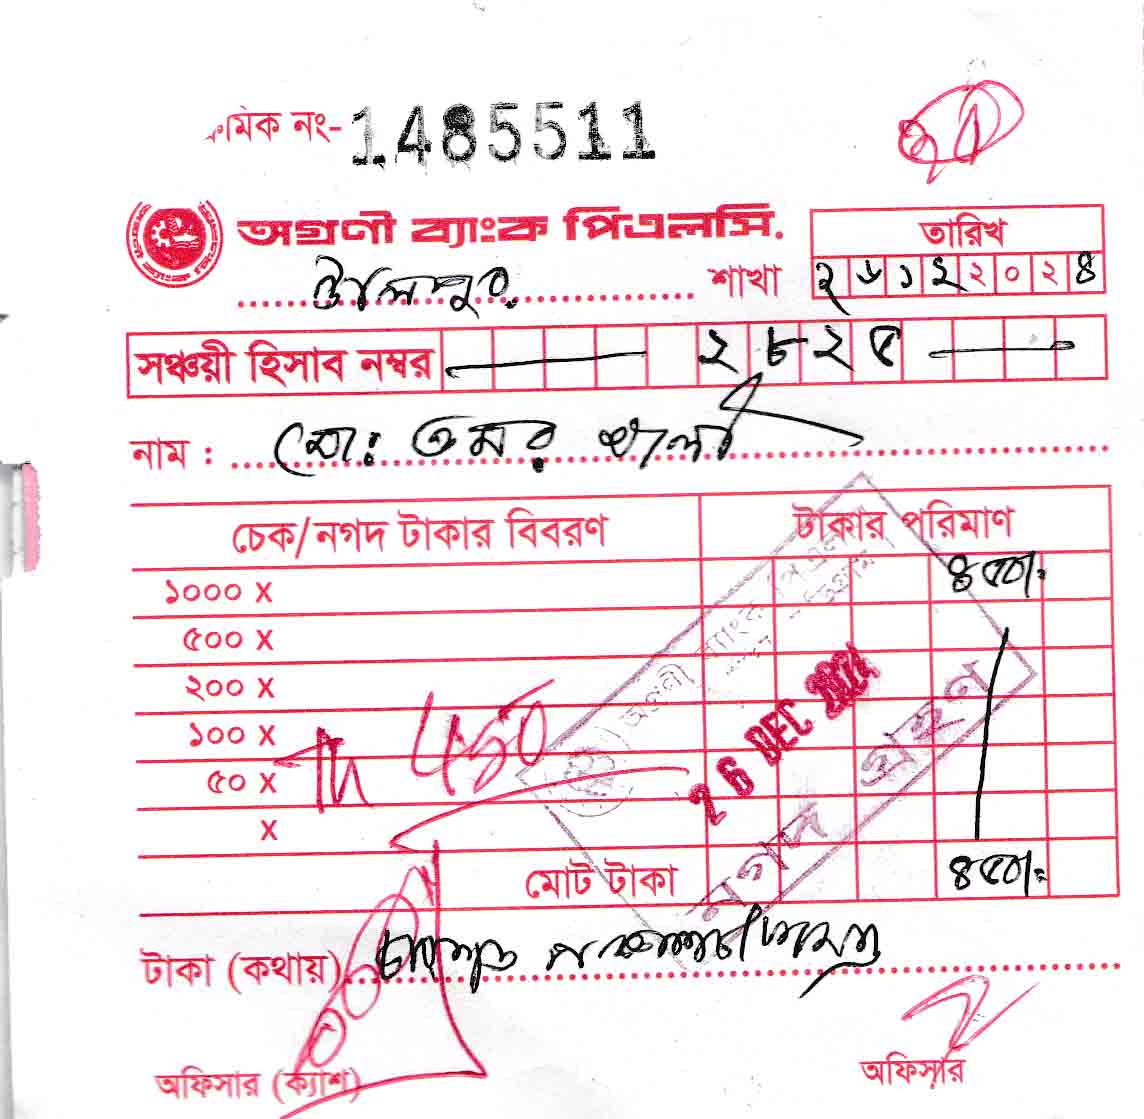 ক্রমিক নং- 1485511
অগ্রণী ব্যাংক পিএলসি.
উলিপুর শাখা
তারিখ
২৬১২২০২৪
সঞ্চয়ী হিসাব নম্বর ২৮২৫
নাম : মোঃ ওমর আলী
চেক/নগদ টাকার বিবরণ টাকার পরিমাণ
১০০০ X ৪৫০/=
৫০০ X
২০০ X
১০০ X
৫০ X
X
450
অগ্রণী ব্যাংক পিএলসি
26 DEC 2024
নগদ গ্রহণ
মোট টাকা ৪৫০/=
টাকা (কথায়) চারশত পঞ্চাশ টাকা মাত্র
অফিসার (ক্যাশ) অফিসার